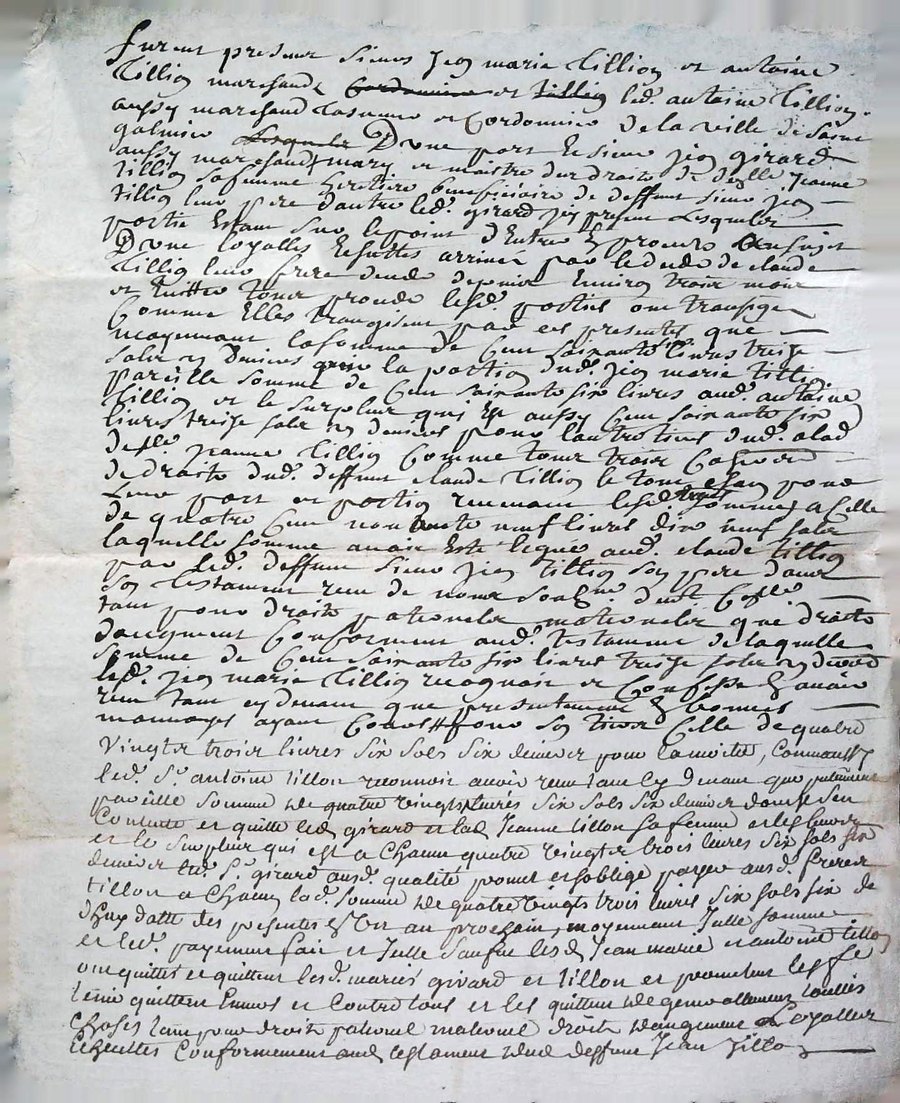 furent presens sieurs Jean marie tillion et antoine
tillion marchands cordonnier et tillion led. antoine tillion
aussy marchand et cordonnier de la ville de saint
galmier Lesquels D'une part Et sieur jean girard
aussy marchand mary et maistre des droits de delle Jeanne
tillion sa femme heretiere beneficiaire de deffunt sieur jean
tillion leur pere d'autre led. girard jcy present Lesquelles
parties Estant sur le point d'Entrer En procets au sujet
D'une loyalles Eschuttes arrivée par le deceds de claude
tillion leur frere decedé depuis Environ trois mois
et Eviter tous proceds lesd. parties ont transigé
comme Elles transigent par ces presentes que
moyennant la somme de Cent soixante six livres treize
sols et deniers pour la portion dud. jean marie tillion
pareille somme de Cent soixante six livres aud. antoine
tillion et le surplus qui Est aussy Cent soixante six
livres treize sols deniers pour l'autre tiers dud. a lad
delle. jeanne tillion Comme tous trois
de droits dud. deffunt claude tillion le tout chacun pour
Leur part et portion revenant lesd. trois sommes a Celle
de quatre Cent nonante neuf livres dix neuf sols
laquelle somme avoit Esté leguée aud. claude tillion
par led. deffunt sieur jean tillion son pere dans
son testament receu de
tant pour droits paternels maternels que droits
d'augment Conformement aud. testament de laquelle
somme de Cent soixante six livres treize sols deniers
led. jean marie tillion recognoit et Confesse En avoir
receu tant cy devant que presentement En bonnes
monnoyes ayant Cours son tiers Celle de quatre
vingts trois livres six sols six deniers pour la moitié, Comm aussy
led. Sr. antoine tillon reconnoit avoir receu tant cy devant que presentement
pareille somme de quatre vingts livres six sols six deniers dont se sen
Contente et quitte led. girard et lad. Jeanne tillon sa femme et les
et le surplus qui est a chacun quatre vingts trois livres six sols six
deniers led. Sr. girard ausd. qualité promet et soblige payer ausd. freres
tillon a chacun lad. somme de quatre vingts trois livres six sols six de
dhuy datte des presentes En Un an prochain, moyennant Jcelle somme
et led. payement fait et Jcelle lesd. Jean marie et antoine tillon
ont quitté et quittent lesd. mariés girard et tillon et promettent les fe
tenir quittent Envers et Contre tous et les quittent de generallement touttes
choses tant pour droits paternel maternel droits d'augment Loyalles
echeuttes Conformement aud. testament dud deffunt Jean tillon